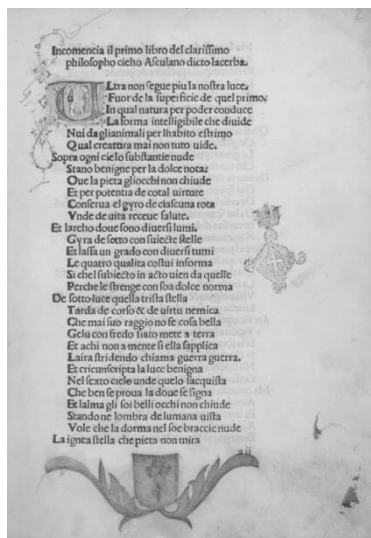 Incomencia il primo libro del clarissimo
philosopho cicho Asculano dicto lacerba.
Ltra non segue piu la nostra luce.
Fuor de la superficie de quel primo.
In qual natura per poder conduce
La forma intelligibile che diuide
Nui da glianimali per lhabito estrimo
Qual creatura mai non tuto uide.
Sopra ogni cielo substantie nude
Stano benigne per la dolce nota:
Oue la pieta gliocchi non chiude
Et per potentia de cotal uirture
Conserua el gyro de ciascuna rota
Vnde de uita receue salute.
Et larcho doue sono diuersi lumi.
Gyra de sotto con suiecte stelle
Et lassa un grado con diuersi tumi
Le quatro qualita costui informa
Si chel subiecto in acto uien da quelle
Perche le strenge con soa dolce norma
De sotto luce questa trista stella
Tarda de corso & de uirtu nemica
Che mai suo raggio no fe cosa bella
Gelu con fredo fiato mete a terra
Et achi non a mente si ella sapplica
Laira stridendo chiama guerra guerra.
Et circunscripta la luce benigna
Nel sexto cielo unde quelo sacquista
Che ben se proua la doue se signa
Et lalma gli soi belli occhi non chiude
Stando ne lombra de lumana uista
Vole che la dorma nel soe braccie nude
La ignea stella che pieta non mira
a ii